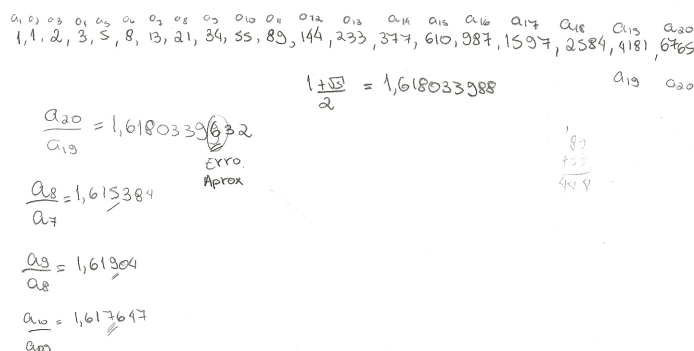 a₁ a₂ a₃ a₄ a₅ a₆ a₇ a₈ a₉ a₁₀ a₁₁ a₁₂ a₁₃ a₁₄ a₁₅ a₁₆ a₁₇ a₁₈ a₁₉ a₂₀
1, 1, 2, 3, 5, 8, 13, 21, 34, 55, 89, 144, 233, 377, 610, 987, 1597, 2584, 4181, 6765
(1+√5)/2 = 1,618033988
a₁₉ a₂₀
a₂₀/a₁₉ = 1,6180339632
Erro
Aprox
a₈/a₇ = 1,615384
a₉/a₈ = 1,61904
a₁₀/a₀₉ = 1,617647
89
+55